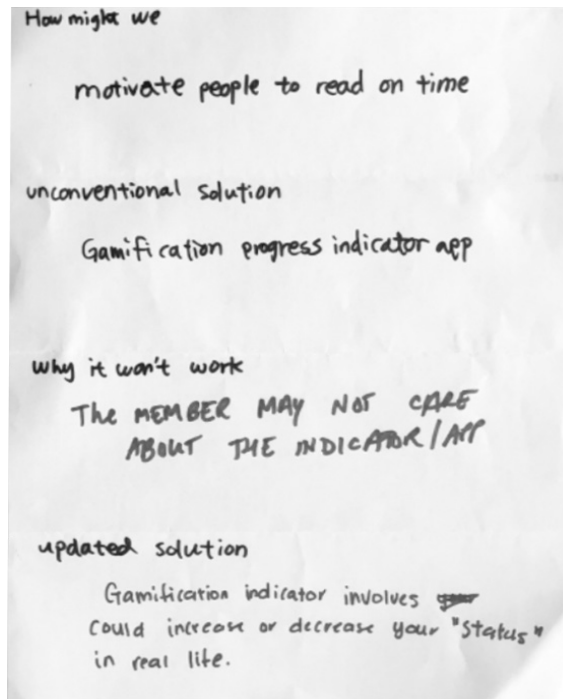 How might we
motivate people to read on time
unconventional solution
Gamification progress indicator app
why it won't work
The MEMBER MAY NOT CARE
ABOUT THE INDICATOR/APP
updated solution
Gamification indicator involves
could increase or decrease your "status"
in real life.